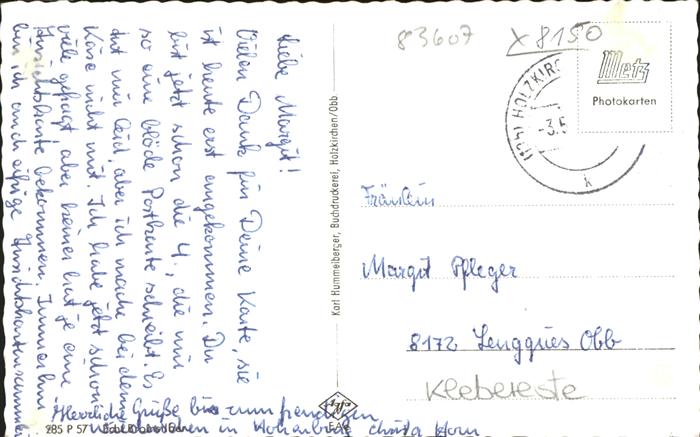 Liebe Margit!
Vielen Dank für Deine Karte, sie
ist heute erst angekommen. Du
bist jetzt schon die 4., die mir
so eine blöde Postkarte schreibt. Es
tut mir leid, aber ich mache bei dem
Käse nicht mit. Ich habe jetzt schon
viele gefragt, aber keiner hat je eine
Ansichtskarte bekommen. Immerhin
bin ich auch eifrige Ansichtskartensammler
Herzliche Grüße bis zum
in
285 P 57
Karl Hummelberger, Buchdruckerei, Holzkirchen/Obb.
Agfa
83607
X 8150
Metz
Photokarten
HOLZKIRC
-3.5
k
Fräulein
Margit Pfleger
8172 Lenggries Obb
Klebereste